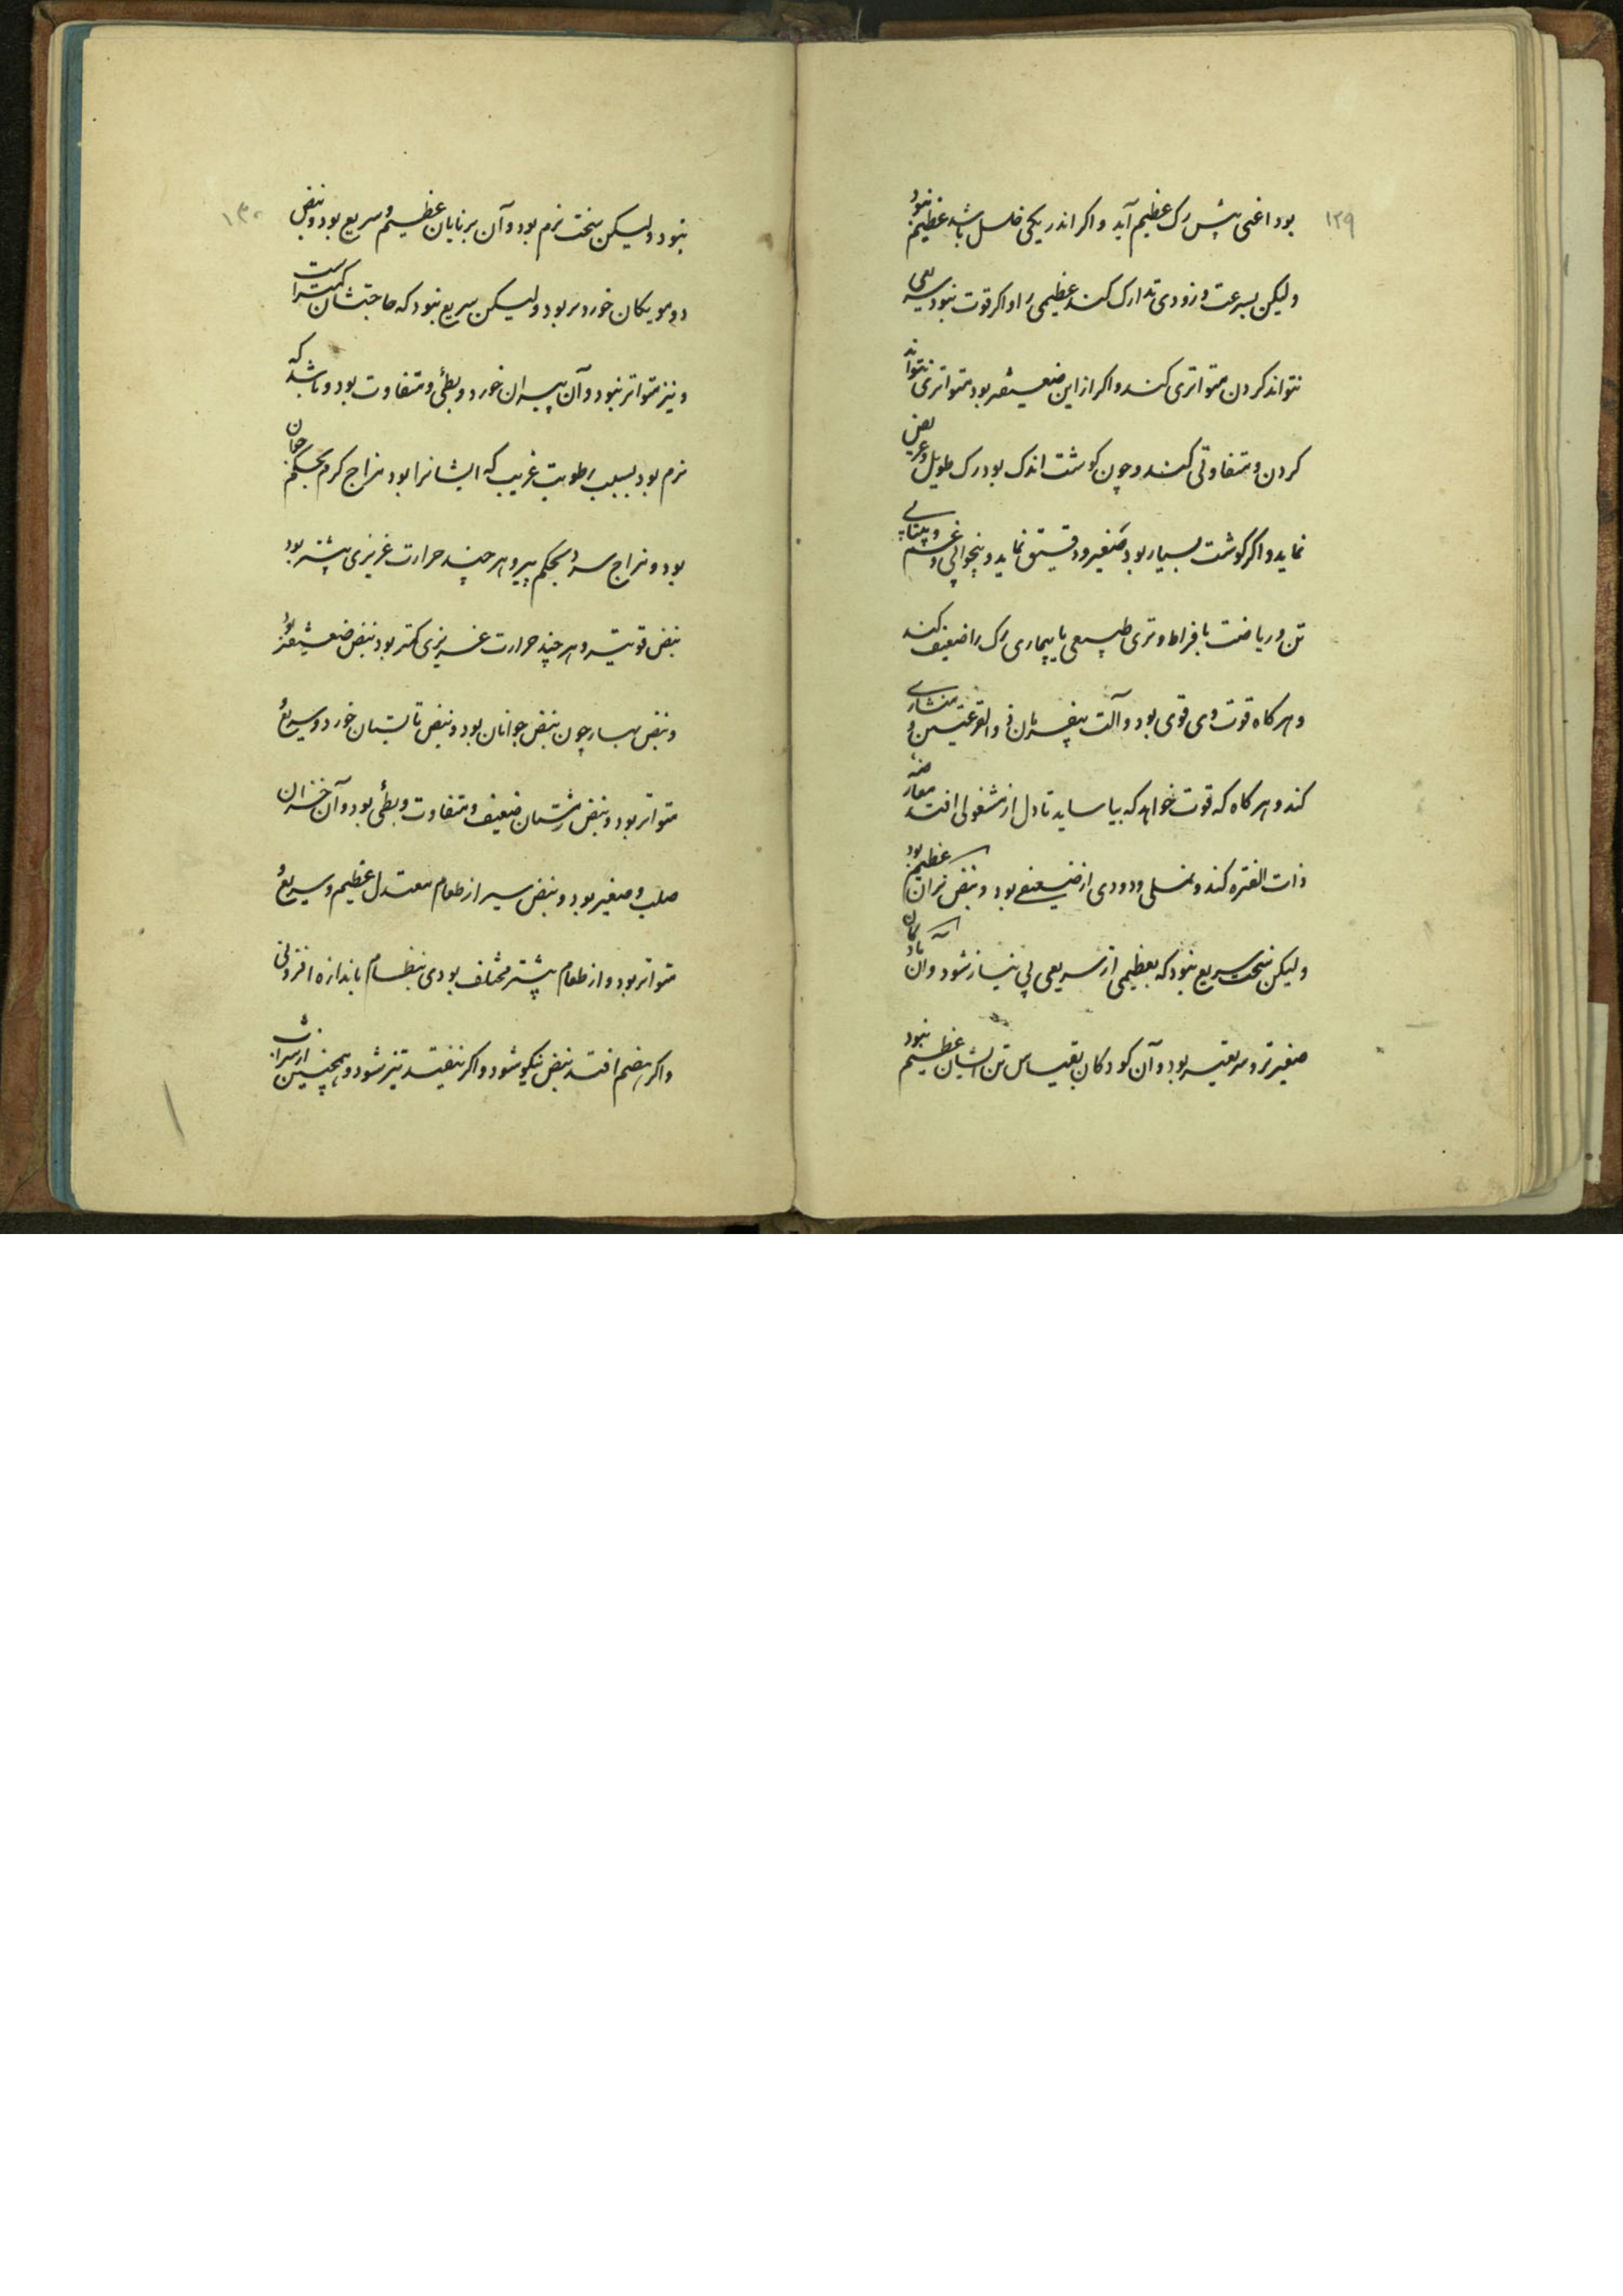 ۱۲۹
بود اعنی پس رک عظیم آید و اکر اندر یکی خلل باشد عظیم نبود
ولیکن بسرعت و زودی تدارک کند عظیمی را و اکر قوت نبود سریعی
نتواند کردن متواتری کند و اکر از این ضعیفتر بود متواتری نتواند
کردن و متفاوتی کند و چون کوشت اندک بود رک طویل و عریض
نماید و اکر کوشت بسیار بود صغیر و دقیق نماید و بیخوابی و غم
تن و ریاضت بافراط و تری طبیعی یا بیماری رک را ضعیف کند
و هر کاه قوت وی قوی بود و آلت بیفرمان ذوالقرعتین و منشاری
کند و هر کاه که قوت خواهد که بیاساید تا دل از مشغولی افتد
ذات الفتره کند و نملی و دودی از ضعیفی بود و نبض نران عظیم بود
ولیکن سخت سریع نبود که بعظیمی از سریعی بی نیاز شود و آن مادکان
صغیرتر و سریعتر بود و آن کودکان بقیاس تن ایشان عظیم نبود
۱۳۰
نبود ولیکن سخت نرم بود و آن برنایان عظیم و سریع بود و نبض
دومویکان خوردتر بود ولیکن سریع نبود که حاجتشان کمتر است
و نیز متواتر نبود و آن پیران خورد و بطی و متفاوت بود و باشد که
نرم بود بسبب رطوبت غریب که ایشانرا بود مزاج کرم بحکم جوان
بود و مزاج سرد بحکم پیر و هر چند حرارت غریزی بیشتر بود
نبض قویتر و هر چند حرارت غریزی کمتر بود نبض ضعیفتر بود
و نبض بهار چون نبض جوانان بود و نبض تابستان خورد و سریع و
متواتر بود و نبض زمستان ضعیف و متفاوت و بطی بود و آن خزان
صلب و صغیر بود و نبض سیر از طعام معتدل عظیم و سریع و
متواتر بود و از طعام بیشتر مختلف بودی بنظام باندازه افزونی
و اکر هضم افتد نبض نیکو شود و اکر نیفتد تیز شود و همچنین از شراب